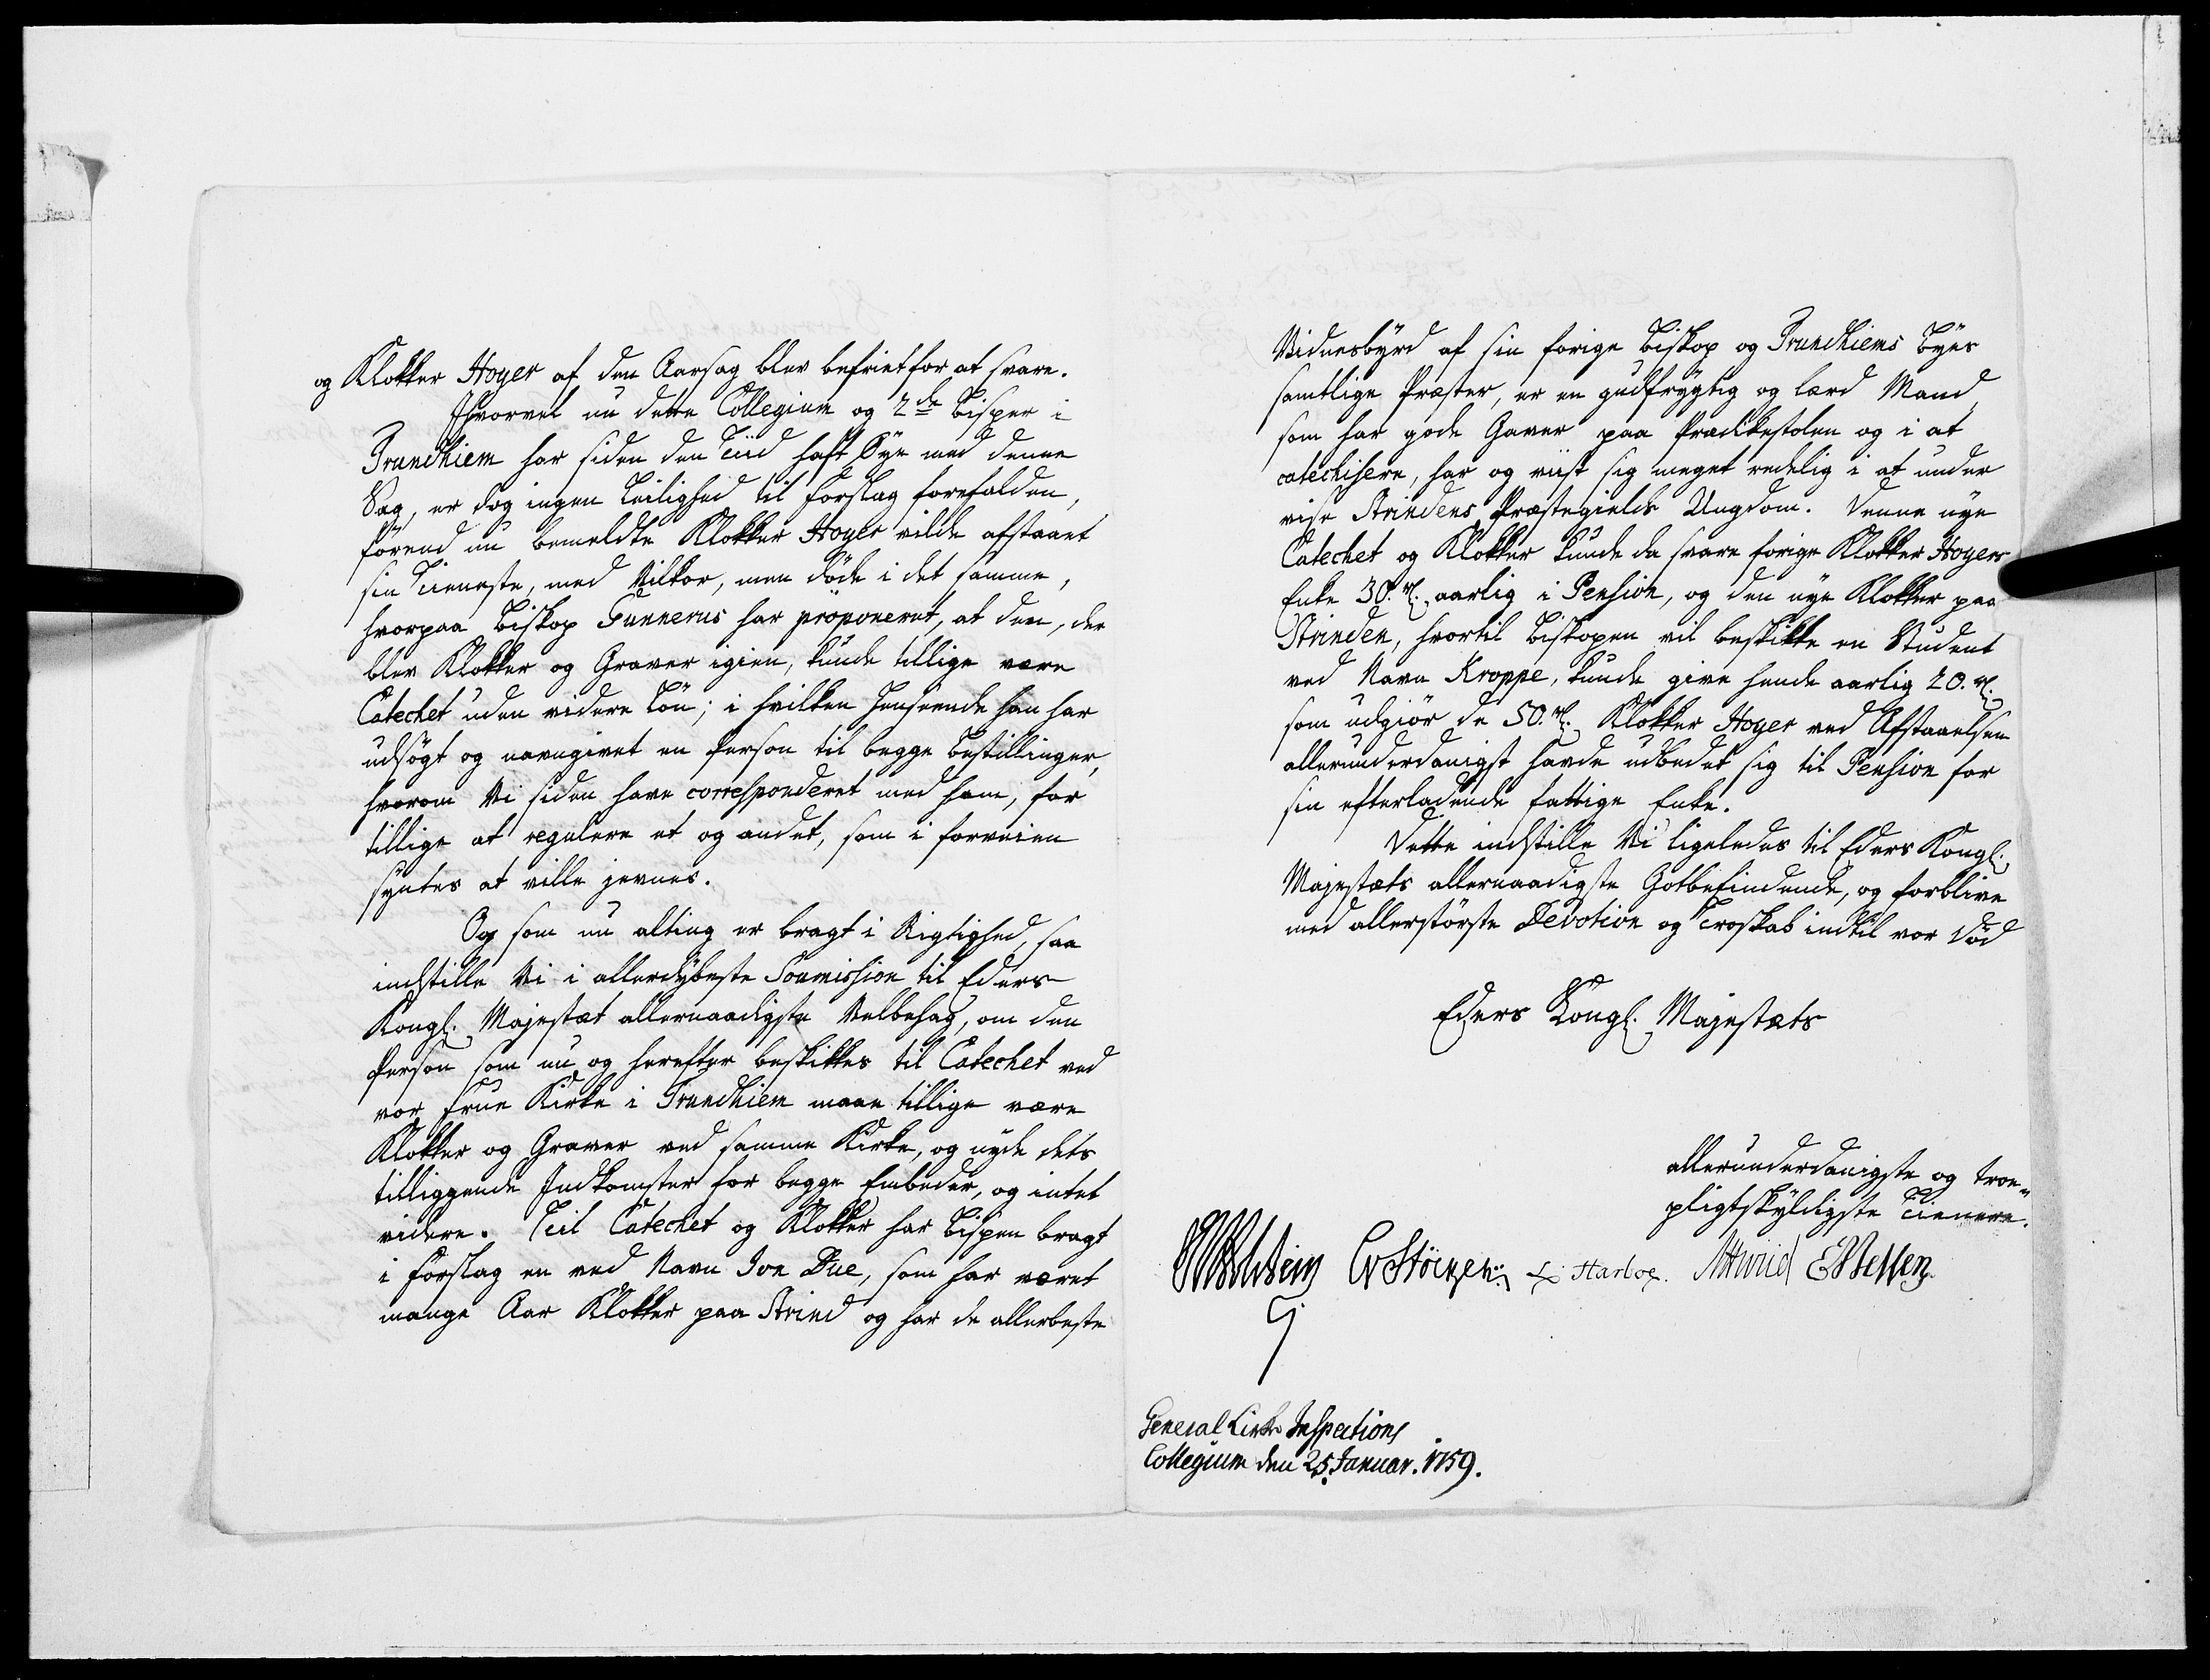 og Klokker Hoyer af den Aarsag blev befriet for at svare.
Ihvorvel nu dette Collegium og 2de Bisper i
Trundhiem har siden den Tiid haft Øye med denne
Sag, er dog ingen Leilighed til Forslag forefalden,
förend nu bemeldte Klokker Hoyer vilde afstaaet
sin Tieneste, med Vilkor, men döde i det samme,
hvorpaa Biskop Gunnerus har proponeret, at den, der
blev Klokker og Graver igien, kunde tillige være
Catechet uden videre Lön; i hvilken Henseende han har
udsögt og navngivet en Person til begge Bestillinger,
hvorom Vi siden have corresponderet med ham, for
tillige at regulere et og andet, som i forveien
syntes at ville jevnes.
Og som nu alting er bragt i Rigtighed, saa
indstille Vi i allerdybeste Soumission til Eders
Kongl. Majestæt allernaadigste Velbehag, om den
Person som nu og herefter beskikkes til Catechet ved
vor Frue Kirke i Trundhiem maae tillige være
Klokker og Graver ved samme Kirke, og nyde dets
tilliggende Indkomster for begge Embeder, og intet
videre. Til Catechet og Klokker har Bispen bragt
i Forslag en ved Navn Jon Due, som har været
mange Aar Klokker paa Strind og har de allerbeste
Vidnesbyrd af sin forige Biskop og Trundhiems Byes
samtlige Præster, er en gudfrygtig og lærd Mand,
som har gode Gaver paa Prædikestolen og i at
catechisere, har og viist sig meget redelig i at under
vise Strindens Præstegields Ungdom. Denne nye
Catechet og Klokker kunde da svare forige Klokker Hoyers
Enke 30. rd. aarlig i Pension, og den nye Klokker paa
Strinden, hvortil Biskopen vil beskikke en Student
ved Navn Kroppe, kunde give hende aarlig 20. rd.
som udgiör de 50. rd. Klokker Hoyer ved Afstaaelsen
allerunderdanigst havde udbedet sig til Pension for
sin efterladende fattige Enke.
Dette indstille Vi ligeledes til Eders Kongl.
Majestæts allernaadigste Gotbefindende, og forblive
med allerstörste Devotion og Troskab indtil vor Död
Eders Kongl. Majestæts
allerunderdanigste og troe-
pligtskyldigste Tienere.
JLHolstein CvStöcken L: Harboe. AHwiid EWessen
General Kirke Inspections
Collegium den 25. Januar. 1759.